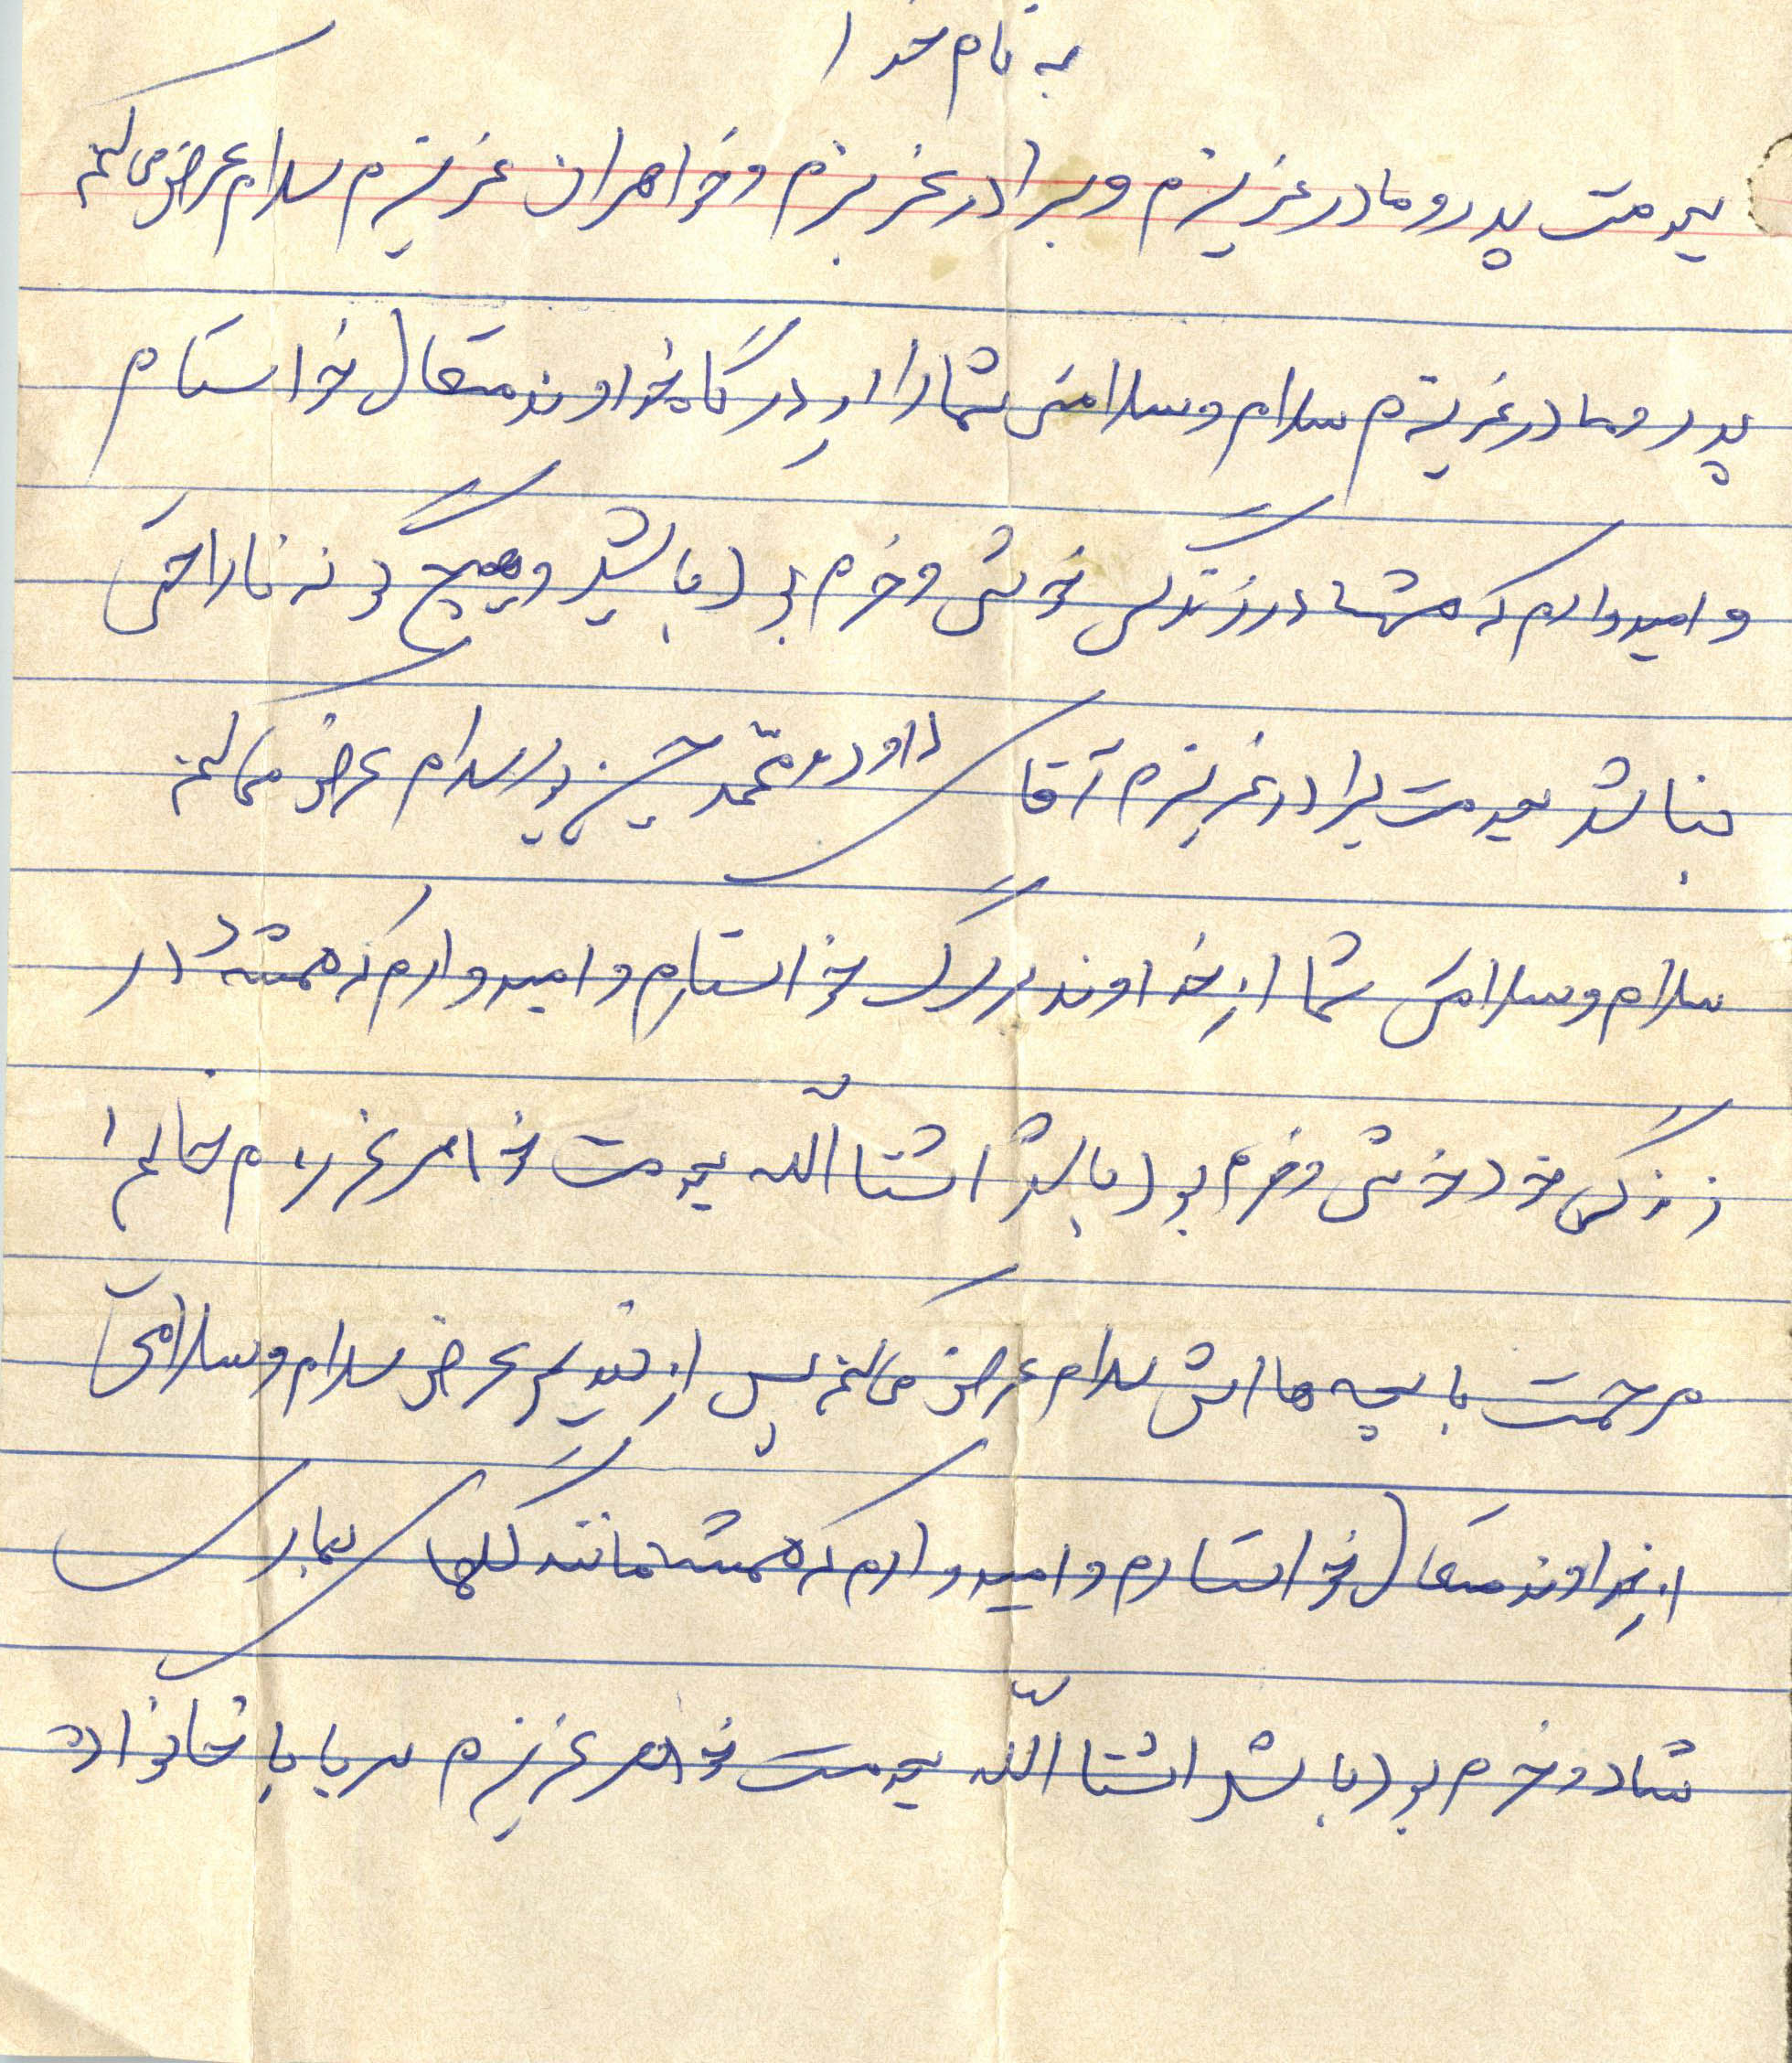 به نام خدا
بخدمت پدر و مادر عزیزم و برادر عزیزم و خواهران عزیزم سلام عرض می کنم
پدر و مادر عزیزم سلام و سلامتی شما را از درگاه خداوند متعال خواستارم
و امیدوارم که شما در زندگی خوش و خرم بوده باشید و هیچ گونه ناراحتی
نباشد بخدمت برادر عزیزم آقا داود و محمد حسین نیز سلام عرض می کنم
سلام و سلامتی شما از خداوند بزرگ خواستارم و امیدوارم که همیشه در
زندگی خود خوش و خرم بوده باشد انشتا الله بخدمت خواهر عزیزم خانم
مرحمت با بچه هااش سلام عرض می کنم پس از تقدیم عرض سلام و سلامتی
از خداوند متعال خواستارم و امیدوارم که همیشه مانند گلهای بهاری
شاد و خرم بوده باشد انشتا الله بخدمت خواهر عزیزم ثریا با خانواده